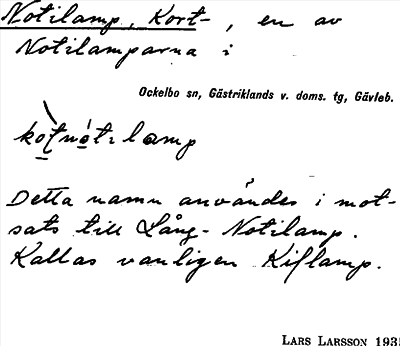 Notilamp, Kort-, en av
Notilamparna i
Ockelbo sn, Gästriklands v. doms. tg, Gävleb.
kòtnótılamp
Detta namn användes i mot-
sats till Lång-Notilamp.
Kallas vanligen Kiflamp.
LARS LARSSON 193